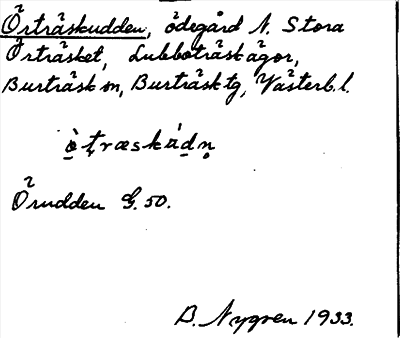 Örträskudden, ödegård N. Stora
Örträsket, Lubboträsk ägor,
Burträsk sn, Burträsk tg, Västerb. l.
Örudden G. 50.
B. Nygren 1933.